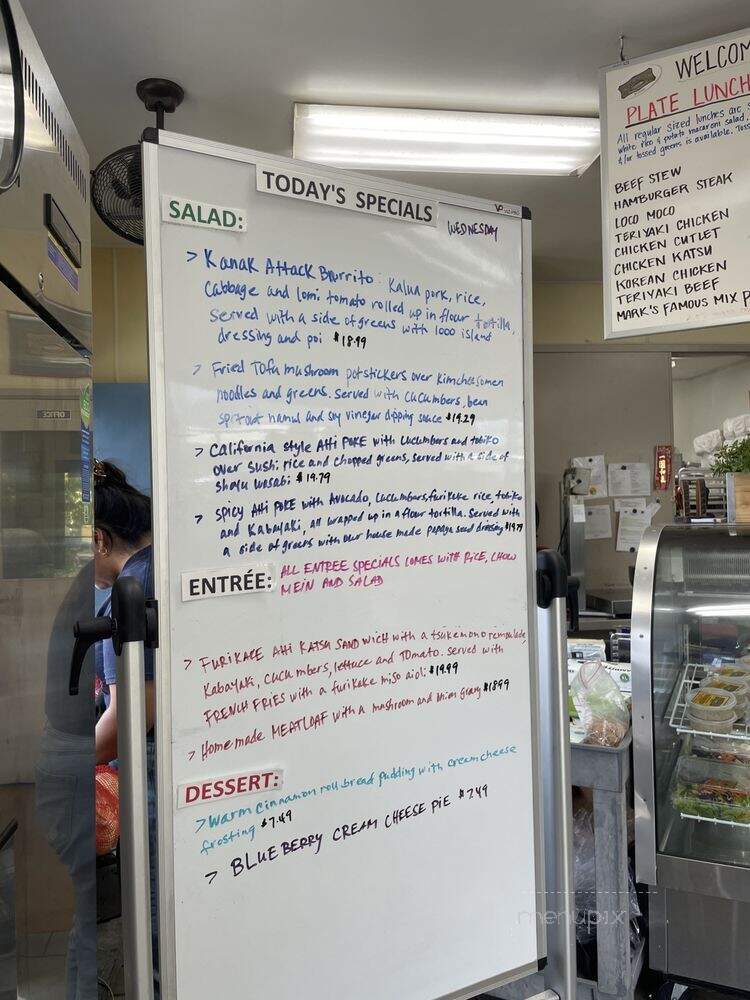 TODAY'S SPECIALS
WEDNESDAY
SALAD:
> Kanak Attack Burrito: Kalua pork, rice,
Cabbage and lomi tomato rolled up in flour tortilla,
Served with a side of greens with 1000 island
dressing and poi $18.99
> Fried Tofu mushroom potstickers over kimchee somen
noodles and greens. Served with cucumbers, bean
sprout namul and soy vinegar dipping sauce $14.29
> California style AHi POKE with cucumbers and tobiko
over sushi rice and chopped greens, served with a side of
shoyu wasabi $19.79
> spicy AHi POKE with Avocado, cucumbers, furikake rice, tobiko
and Kabayaki, all wrapped up in a flour tortilla. Served with
a side of greens with our house made papaya seed dressing $19.79
ENTRÉE:
ALL ENTREE SPECIALS COMES WITH RICE, CHOW
MEIN AND SALAD
> FURIKAKE AHi KATSU SANDWICH with a tsukemono remoulade,
Kabayaki, cucumbers, lettuce and TOmato. served with
FRENCH FRIES with a furikake miso aioli $19.99
> Homemade MEATLOAF with a mushroom and onion gravy $18.99
DESSERT:
> Warm cinnamon roll bread pudding with creamcheese
frosting $7.49
> BLUEBERRY CREAM CHEESE PIE $7.49
WELCOM
PLATE LUNCH
All regular sized lunches are
white rice & potato macaroni salad.
&/or tossed greens is available.
BEEF STEW
HAMBURGER STEAK
LOCO MOCO
TERIYAKI CHICKEN
CHICKEN CUTLET
CHICKEN KATSU
KOREAN CHICKEN
TERIYAKI BEEF
MARK'S FAMOUS MIX P
OFFICE
menupix